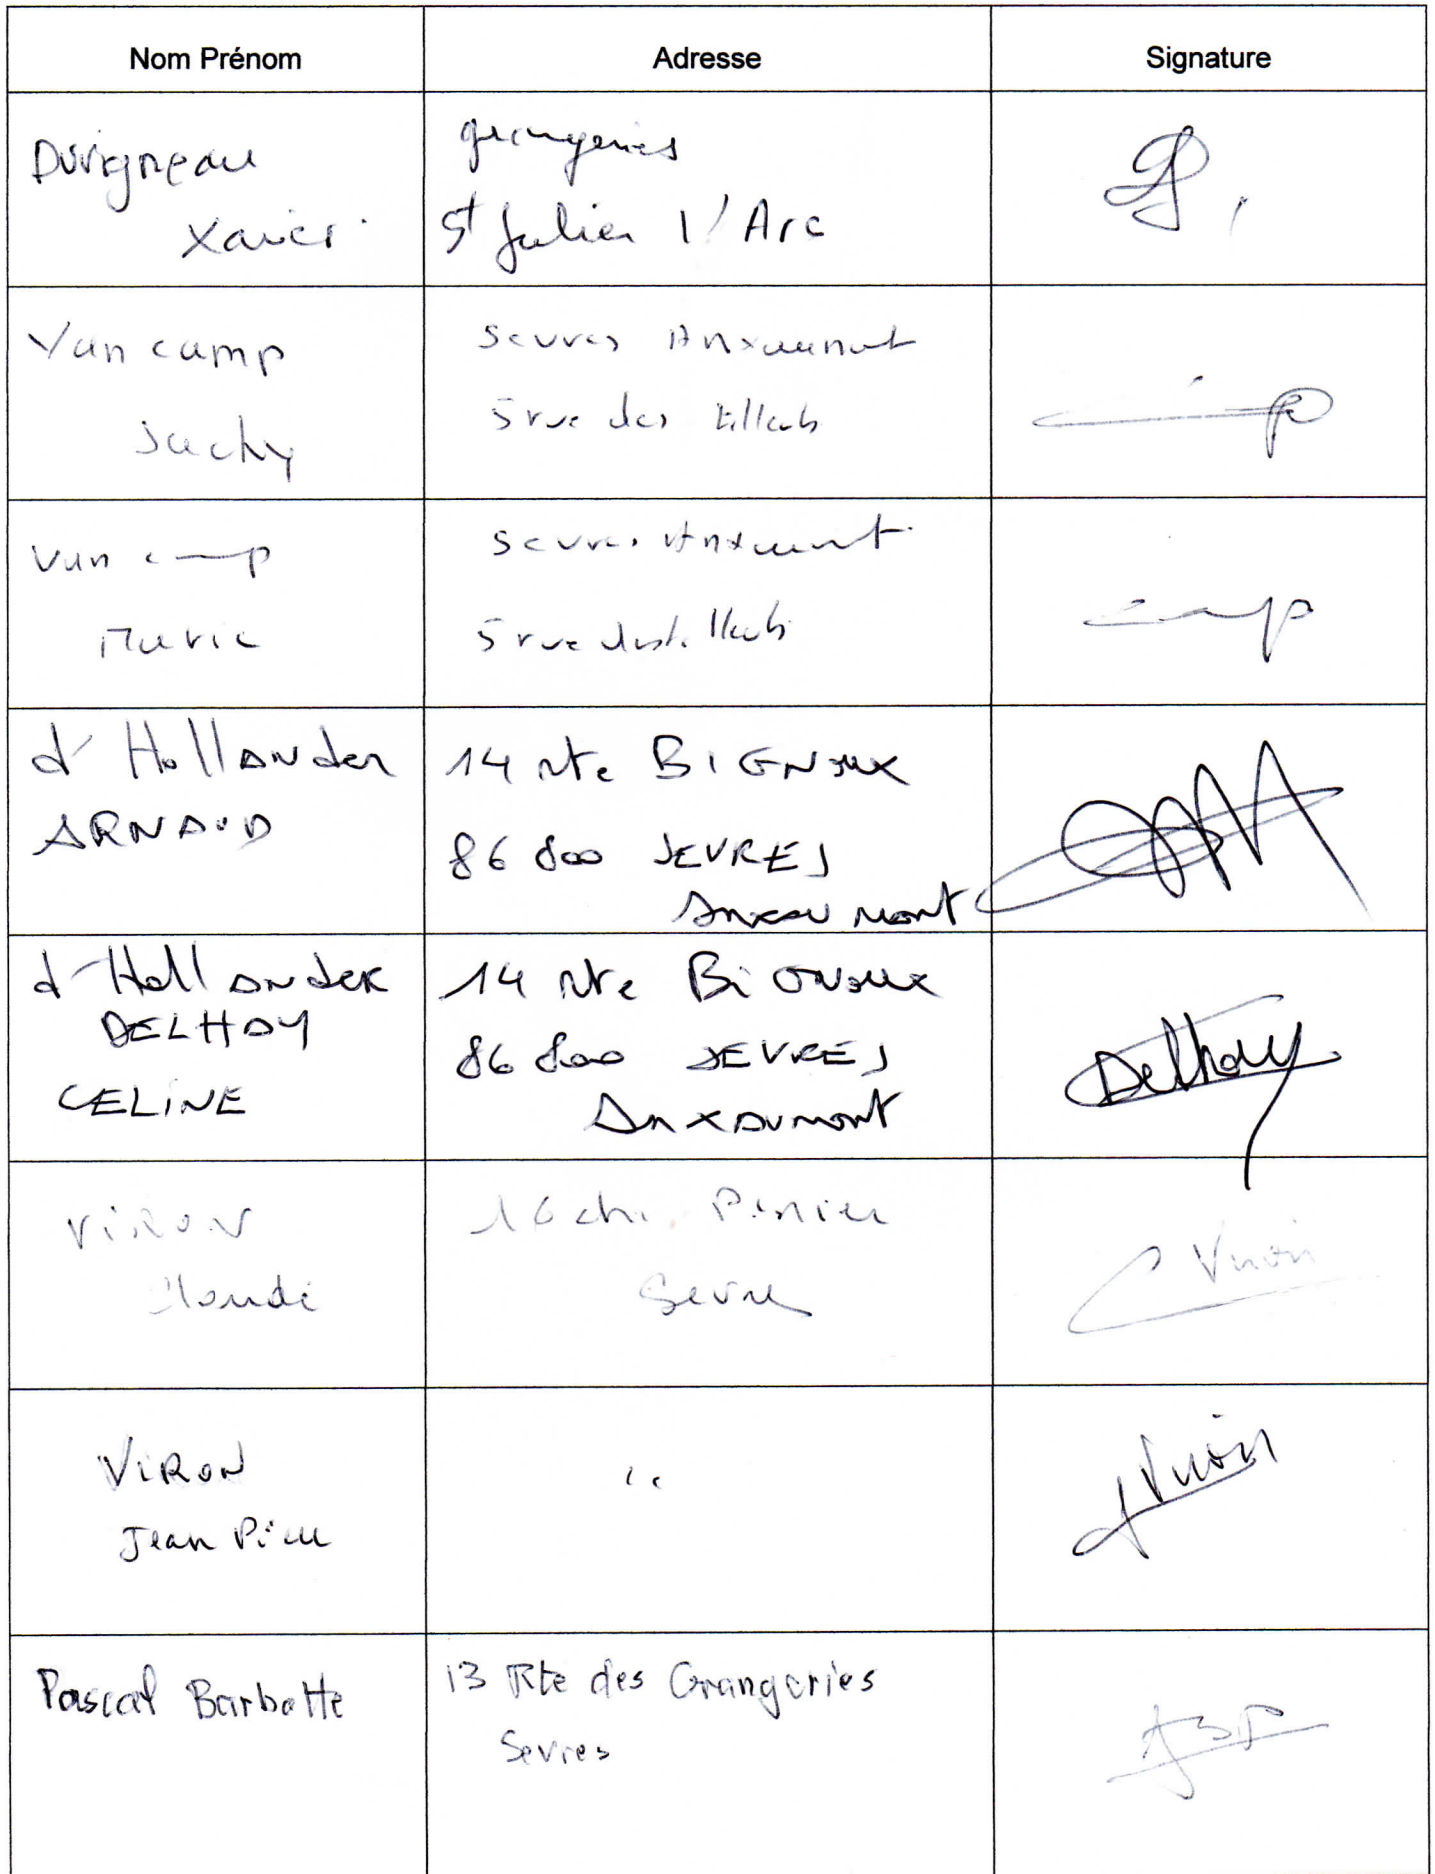 Nom Prénom
Adresse
Signature
Duvigneau
Xavier
grangeries
St Julien l'Arc
Van camp
Jacky
Sevres Anxaumont
5 rue des tilleuls
Van camp
Marie
Sevres Anxaumont
5 rue des tilleuls
d'Hollander
ARNAUD
14 rte BIGNOUX
86 800 SEVRES
Anxaumont
d'Hollander
DELHAY
CELINE
14 rte BiGNOUX
86 800 SEVRES
Anxaumont
Delhay
VIRON
Sevres
Viron
VIRON
Jean Pierre
Viron
Pascal Barbotte
13 Rte des Grangeries
Sevres